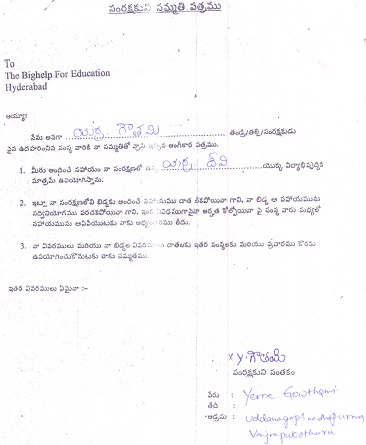 సంరక్షకుని సమ్మతి పత్రము
To
The Bighelp For Education
Hyderabad
అయ్యా!
నేను అనగా యర్ర గౌతమి తండ్రి/తల్లి/సంరక్షకుడు
పైన ఉదహరించిన సంస్థ వారికి నా సమ్మతితో వ్రాసి ఇచ్చిన అంగీకార పత్రము.
1. మీరు అందించే సహాయం నా సంరక్షణలో ఉన్న యర్ర దేవి యొక్క విద్యాభివృద్ధికి
మాత్రమే ఉపయోగిస్తాను.
2. ఇట్లా నా సంరక్షణలోని బిడ్డకు అందించే సహాయము దాత లేకపోయినా గాని, నా బిడ్డ ఆ సహాయమును
సద్వినియోగము పరచకపోయినా గాని, ఇంక ఏవిధముగానైనా అర్హత కోల్పోయినా పై సంస్థ వారు మధ్యలో
సహాయమును ఆపివేయుటకు నాకు అభ్యంతరము లేదు.
3. నా వివరములు మరియు నా బిడ్డల వివరములు దాతలకు ఇతర సంస్థలకు మరియు ప్రచారము కొరకు
ఉపయోగించుకొనుటకు నాకు సమ్మతము.
ఇతర వివరములు ఏమైనా :-
x y. గౌతమి
సంరక్షకుని సంతకం
పేరు : Yerra Gowthami
తేది :
అడ్రసు :
Vajrapukothuru